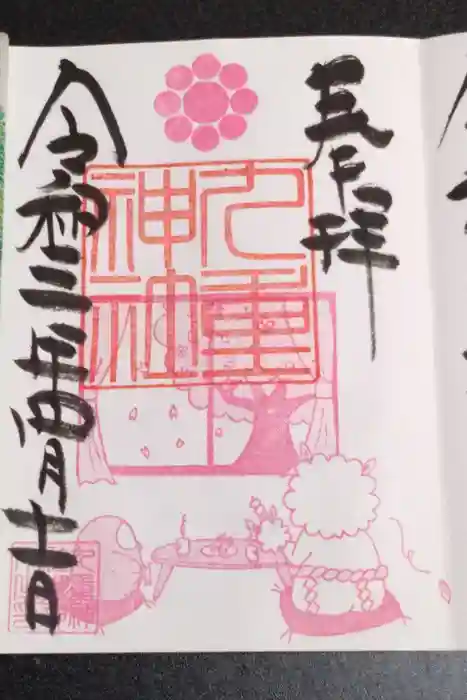 奉拝
九重
神社
令和三年四月十一日